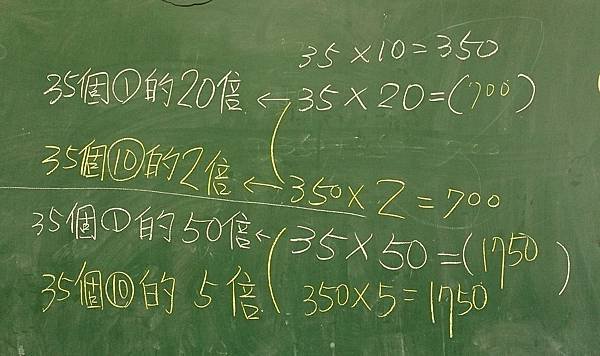 35×10=350
35個①的20倍 ← 35×20=(700)
35個⑩的2倍 ← 350×2=700
35個①的50倍 ← 35×50=(1750)
35個⑩的5倍 350×5=1750